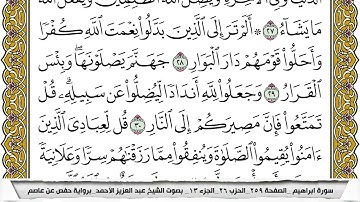 مَا يَشَآءُ ٢٧ ۞ أَلَمْ تَرَ إِلَى ٱلَّذِينَ بَدَّلُوا۟ نِعْمَتَ ٱللَّهِ كُفْرًا
وَأَحَلُّوا۟ قَوْمَهُمْ دَارَ ٱلْبَوَارِ ٢٨ جَهَنَّمَ يَصْلَوْنَهَا ۖ وَبِئْسَ
ٱلْقَرَارُ ٢٩ وَجَعَلُوا۟ لِلَّهِ أَندَادًا لِّيُضِلُّوا۟ عَن سَبِيلِهِۦ ۗ قُلْ
تَمَتَّعُوا۟ فَإِنَّ مَصِيرَكُمْ إِلَى ٱلنَّارِ ٣٠ قُل لِّعِبَادِىَ ٱلَّذِينَ
ءَامَنُوا۟ يُقِيمُوا۟ ٱلصَّلَوٰةَ وَيُنفِقُوا۟ مِمَّا رَزَقْنَٰهُمْ سِرًّا وَعَلَانِيَةً
سورة ابراهيم _ الصفحة ٢٥٩ _ الحزب ٢٦ _ الجزء ١٣ _ بصوت الشيخ عبد العزيز الأحمد _ برواية حفص عن عاصم